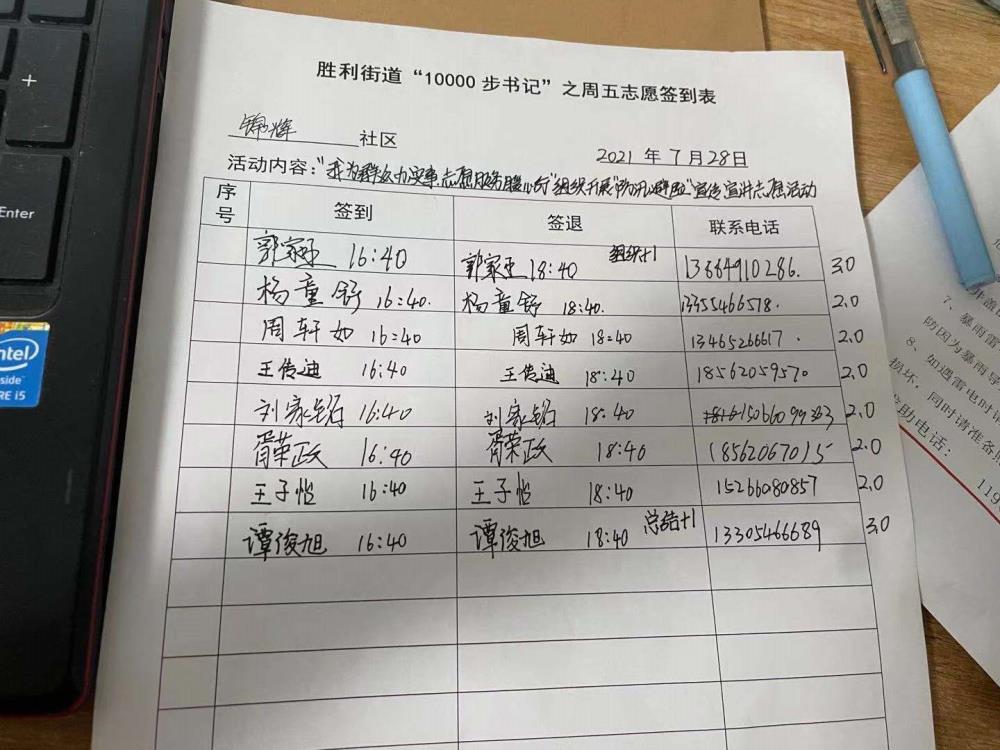 胜利街道“10000步书记”之周五志愿签到表
锦辉 社区
2021年7月28日
活动内容:“我为群众办实事志愿服务暖心行”组织开展“防汛避险”宣传宣讲志愿活动
序号 签到 签退 联系电话
郭家亚 16:40 郭家亚 18:40 组织+1 13664910286. 3.0
杨童舒 16:40. 杨童舒 18:40. 13355466518. 2.0
周轩如 16:40 周轩如 18:40 13465266617. 2.0
王传迪 16:40 王传迪 18:40 18562059570 2.0
刘家铭 16:40 刘家铭 18:40 15066099333 2.0
胥荣政 16:40 胥荣政 18:40 18562067015 2.0
王子恺 16:40 王子恺 18:40 15266080857 2.0
谭俊旭 16:40 谭俊旭 18:40 总结+1 13305466689 3.0
+
Enter
intel
inside
CORE i5
7、暴雨雷
防因为暴雨导
8、如遇雷电时
损坏,同时请准备
助电话:
119